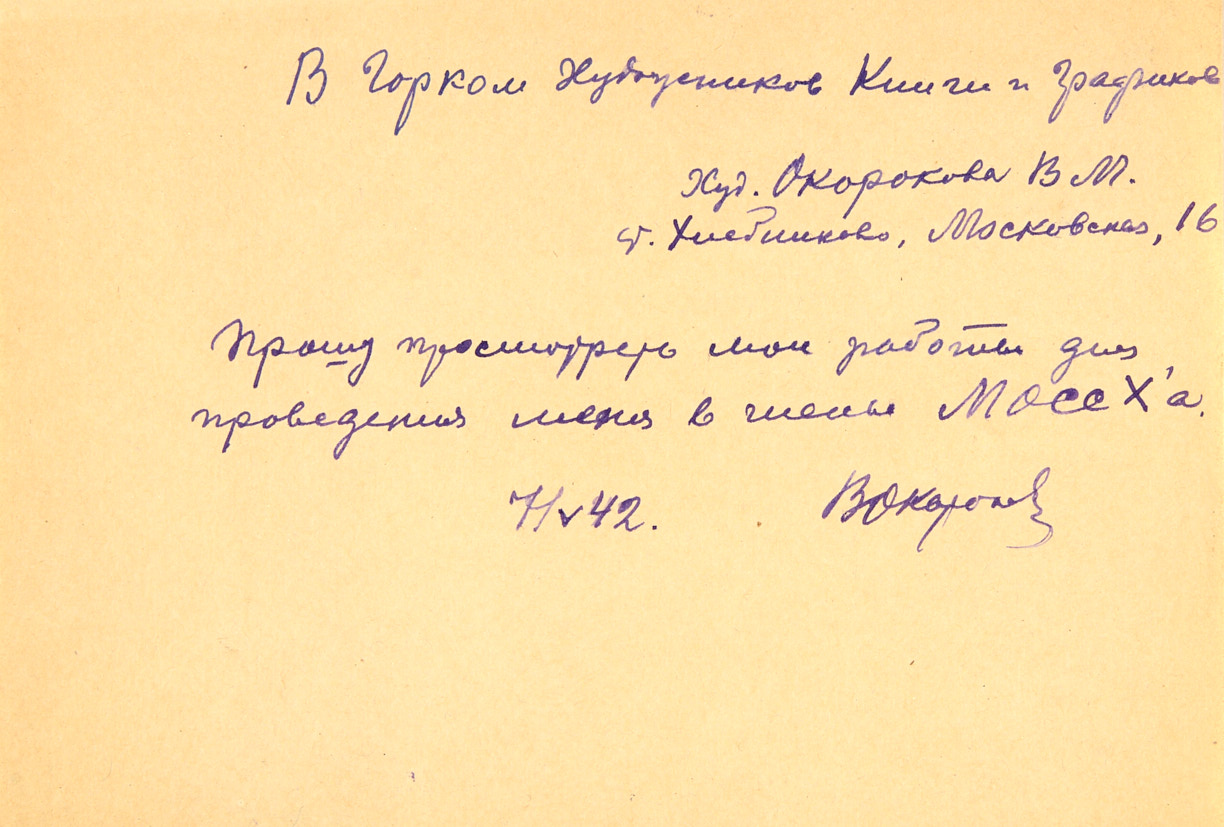 В Горком Художников Книги и Графиков
Худ. Окорокова В М.
ст. Хлебниково, Московская, 16
Прошу просмотреть мои работы для
проведения меня в члены МОССХ'а.
7/V 42. ВОкороков